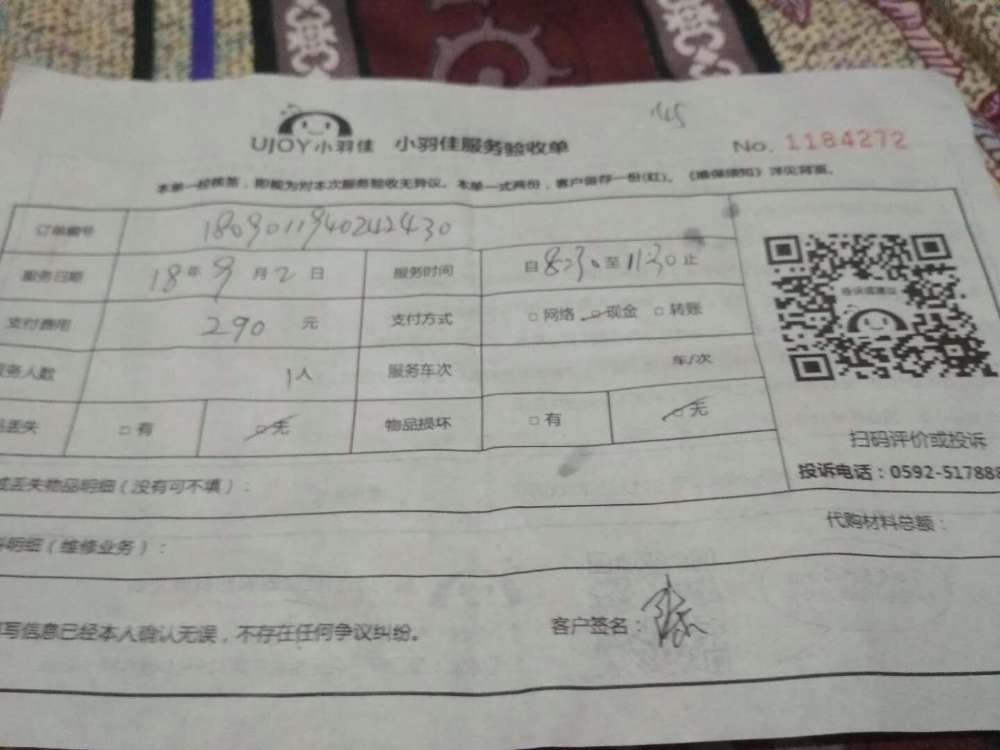 UJOY小羽佳 小羽佳服务验收单 No. 1184272
本单一经核签，即视为对本次服务验收无异议。本单一式两份，客户留存一份(红)。《维保须知》详见背面。
订单编号 1809011940242430
服务日期 18年9月2日 服务时间 自8:30至11:30止
支付费用 290元 支付方式 □网络 □现金 □转账
服务人数 1人 服务车次 车/次
品丢失 □有 □无 物品损坏 □有 □无
投诉或建议
扫码评价或投诉
投诉电话：0592-517888
或丢失物品明细（没有可不填）：
代购材料总额：
料明细（维修业务）：
写信息已经本人确认无误，不存在任何争议纠纷。 客户签名：